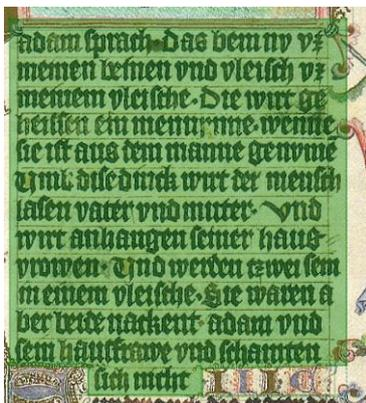 adam sprach· Das bein nv vz
meinen beinen vnd vleisch vz
meinem vleische· Die wirt ge
heissen ein menninne· wenne
sie ist aus dem manne genome̅
Vmb dise dinck wirt der mensch
lasen vater vnd mutter· Vnd
wirt anhangen seiner haus
vrowen· Vnd werden tzwei sein
in einem vleische· Sie waren a
ber beide nackent· adam vnd
sein hausfrawe vnd schamten
sich nicht